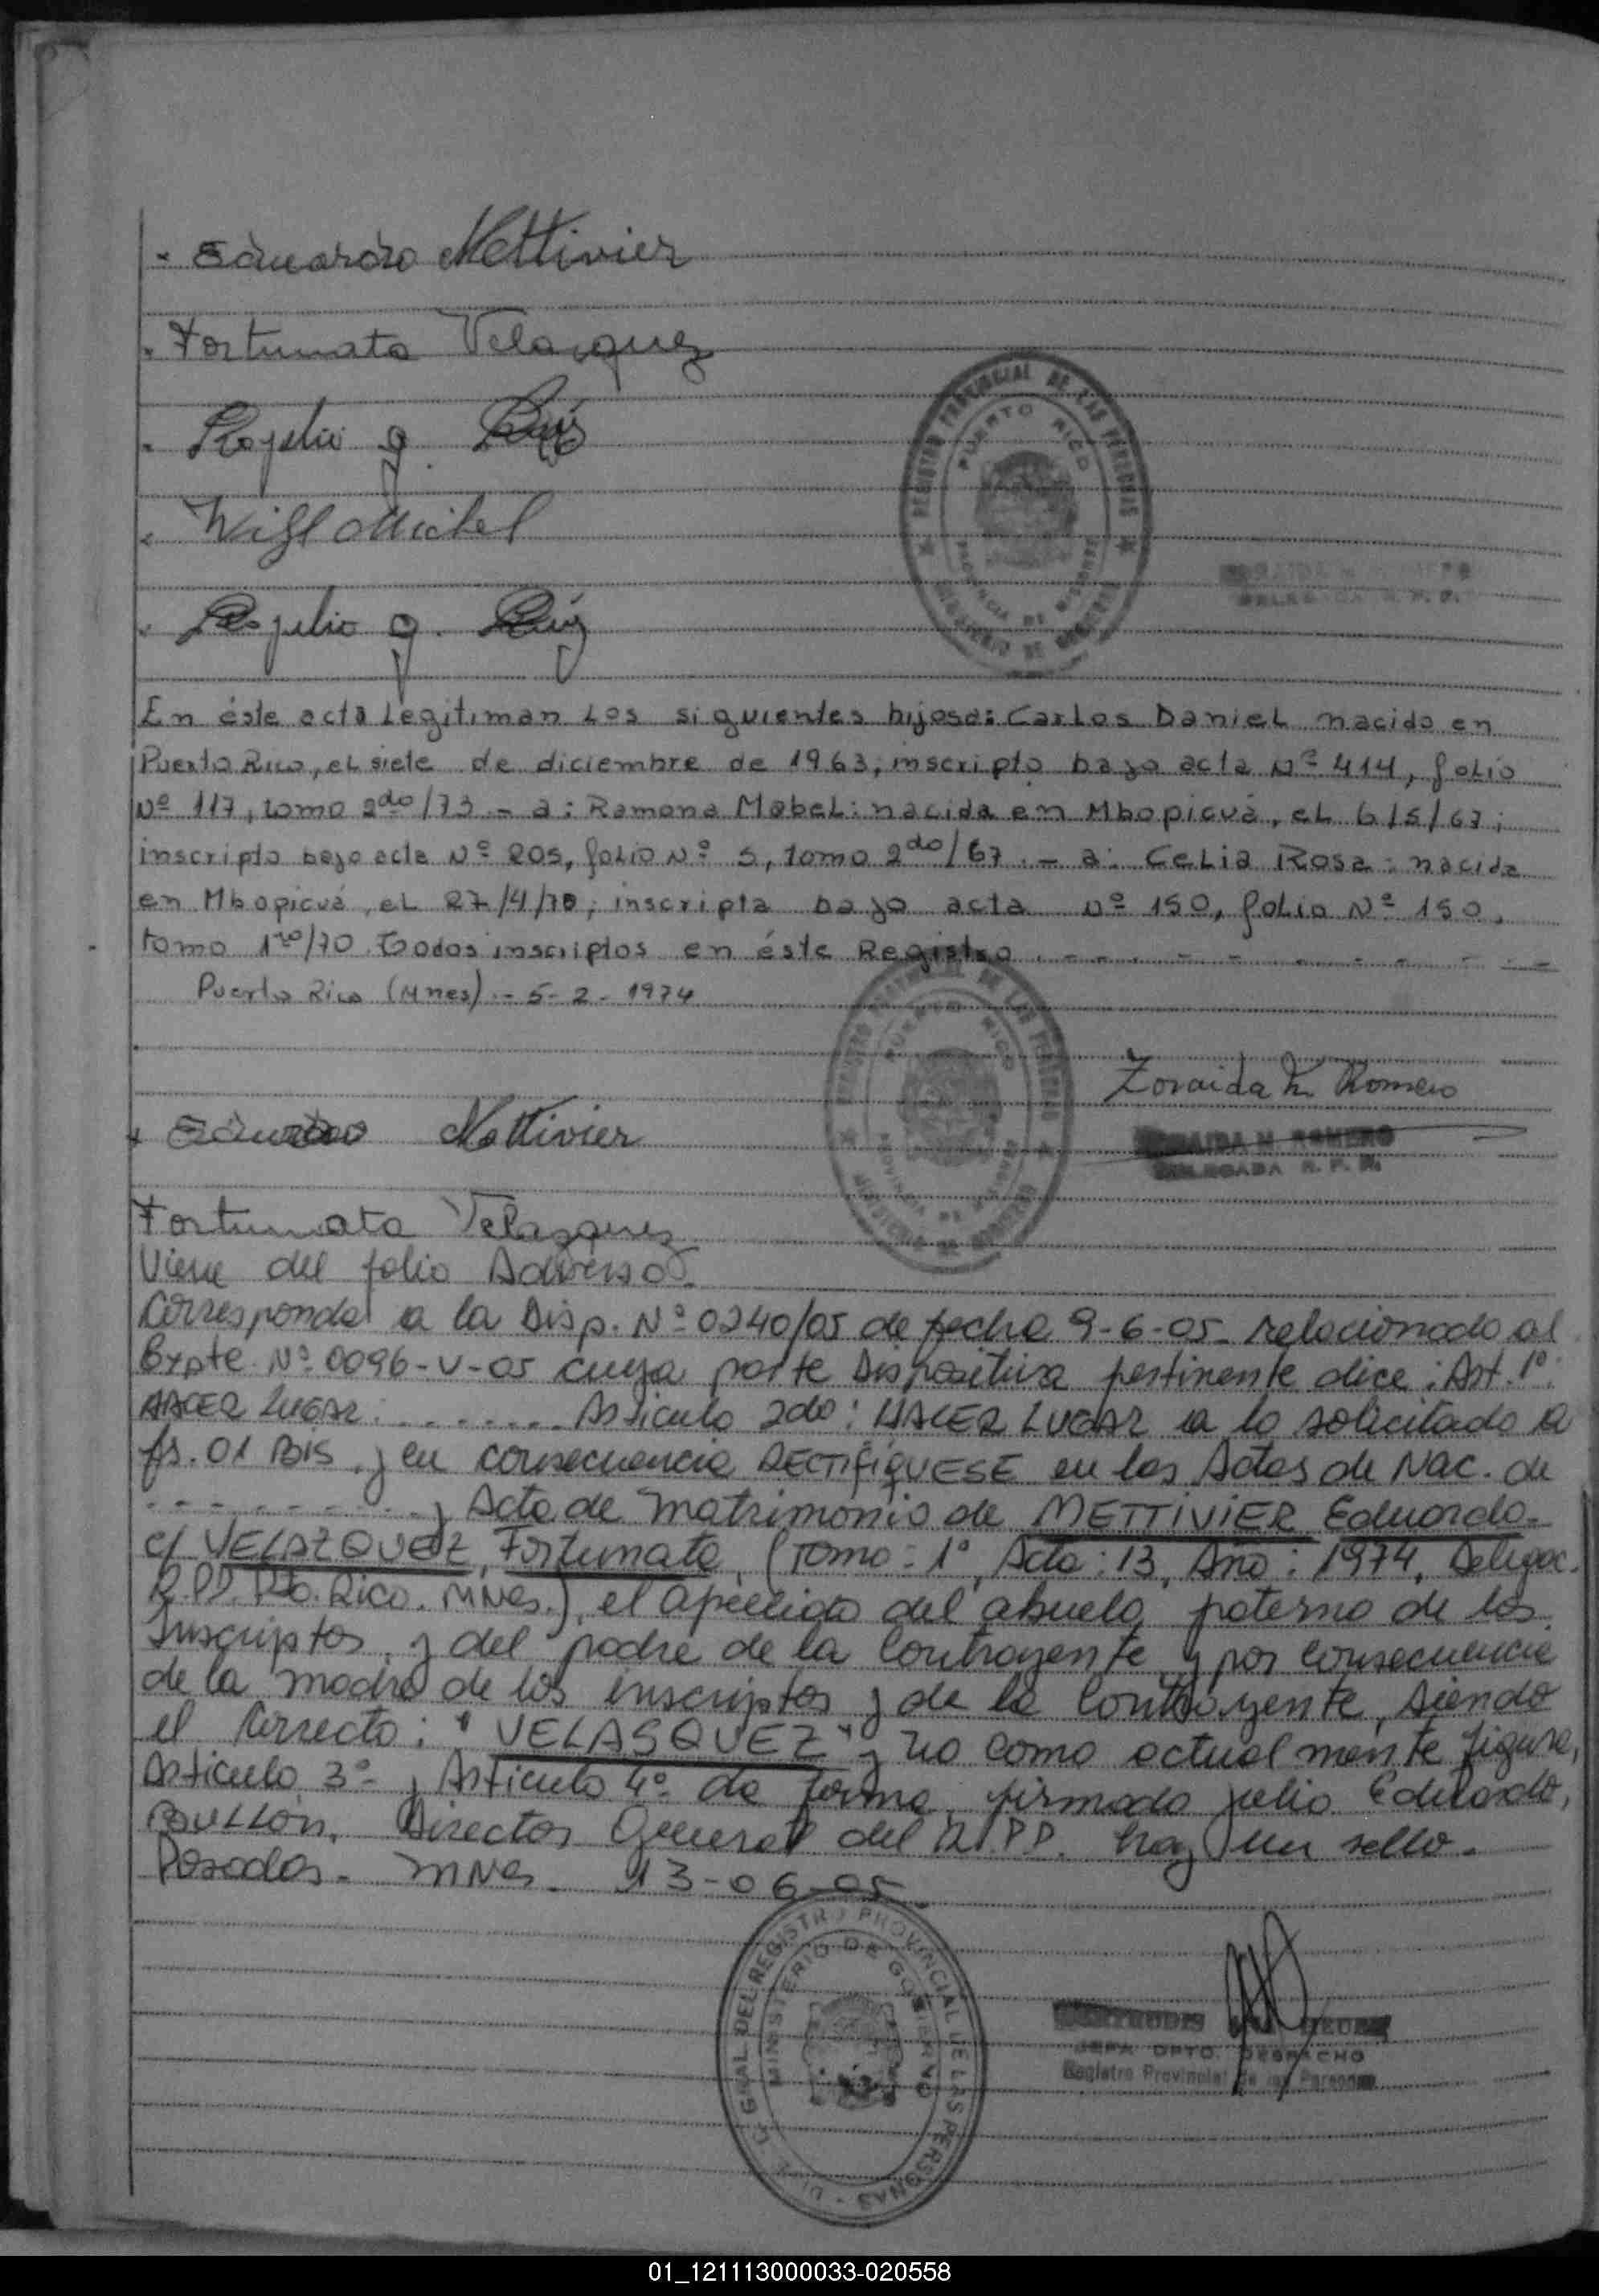 Eduardo Mettivier
Fortunata Velasquez
Rogelio J. Ruiz
Michel
Rogelio J. Ruiz
REGISTRO PROVINCIAL DE LAS PERSONAS
PUERTO RICO
PROVINCIA DE MISIONES
MINISTERIO DE GOBIERNO
DELEGADA R. P. P.
En éste acta Legitiman Los siguientes hijos a: Carlos Daniel nacido en
Puerto Rico, el siete de diciembre de 1963, inscripto bajo acta Nº 414, folio
Nº 117, tomo 2do/73 - a: Ramona Mabel: nacida en Mbopicuá, el 6/5/67;
inscripto bajo acta Nº 205, folio Nº 5, tomo 2do/67. - a: Celia Rosa: nacida
en Mbopicuá, el 27/4/70; inscripta bajo acta Nº 150, folio Nº 150,
tomo 1ro/70. Todos inscriptos en éste Registro.
Puerto Rico (Mnes) - 5-2-1974
Zoraida M. Romero
ZORAIDA M. ROMERO
DELEGADA R. P. P.
Eduardo Mettivier
Fortunata Velasquez
Viene del folio Adverso.
Corresponde a la Disp. Nº 0240/05 de fecha 9-6-05 relacionado al
Expte. Nº 0096-V-05 cuya parte Dispositiva pertinente dice: Art. 1º:
HACER LUGAR: ........ Articulo 2do: HACER LUGAR a lo solicitado a
fs. 01 Bis y en consecuencia RECTIFIQUESE en las Actas de Nac. de
---------- y Acta de Matrimonio de METTIVIER Eduardo
c/ VELAZQUEZ, Fortunata, (Tomo: 1º, Acta: 13, Año: 1974, Delegac.
R.PP. Pto. Rico. MNes.), el apellido del abuelo paterno de los
Inscriptos, y del padre de la Contrayente y por consecuencia
de la madre de los inscriptos y de la Contrayente, siendo
el Correcto: "VELASQUEZ" y no como actualmente figura,
Articulo 3º y Articulo 4º de forma, firmado Julio Eduardo,
BULLON, Director General del R.PP. hay un sello.
Posadas - MNes. 13-06-05
DIR. GRAL DEL REGISTRO PROVINCIAL DE LAS PERSONAS
MINISTERIO DE GOBIERNO
JEFA DPTO. DESPACHO
Registro Provincial de las Personas
01_121113000033-020558